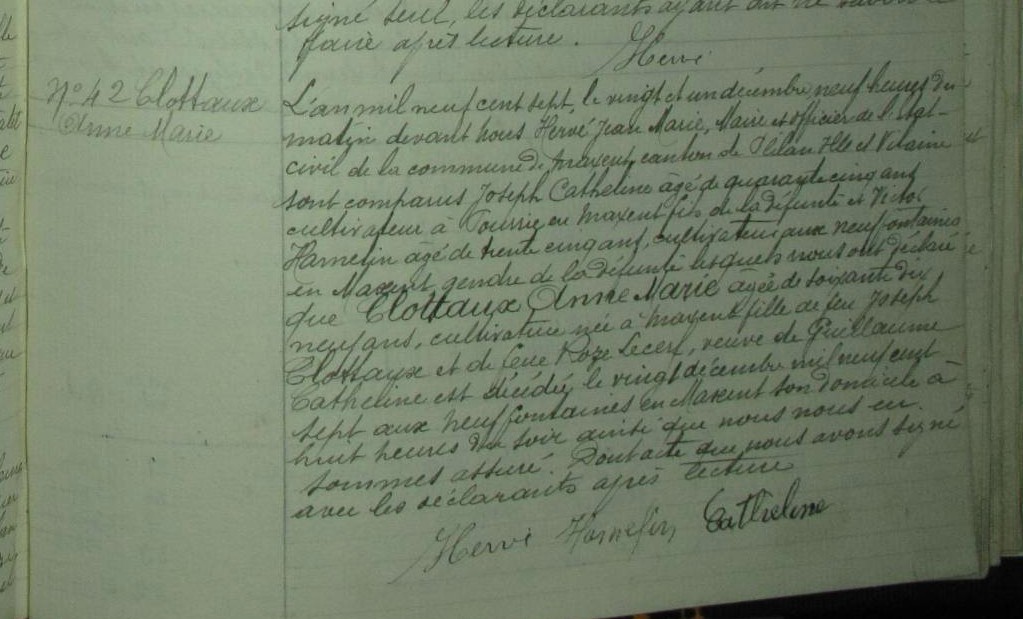 signé seul, les déclarants ayant dit ne savoir le
faire après lecture.
Hervé
N° 42 Clottaux
Anne Marie
L'an mil neuf cent sept, le vingt et un décembre neuf heures du
matin devant nous Hervé Jean Marie, Maire et officier de l'état-
civil de la commune de Maxent, canton de Plélan Ille et Vilaine
sont comparus Joseph Catheline âgé de quarante cinq ans
cultivateur à en Maxent fils de la défunte et Victor
Hamelin âgé de trente cinq ans, cultivateur aux neuf fontaines
en Maxent gendre de la défunte lesquels nous ont déclaré
que Clottaux Anne Marie âgée de soixante dix
neuf ans, cultivatrice née à Maxent fille de feu Joseph
Clottaux et de feue Roze Lecerf, veuve de Guillaume
Catheline est décédée le vingt décembre mil neuf cent
sept aux neuf fontaines en Maxent son domicile à
huit heures du soir ainsi que nous nous en
sommes assuré. Dont acte que nous avons signé
avec les déclarants après lecture
Hervé Hamelin Catheline